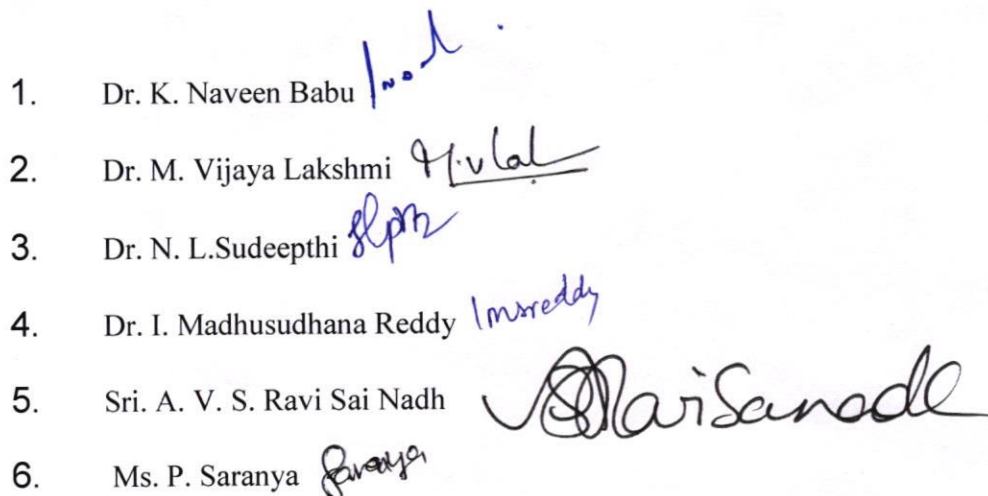 1. Dr. K. Naveen Babu
2. Dr. M. Vijaya Lakshmi M.v Lal
3. Dr. N. L.Sudeepthi
4. Dr. I. Madhusudhana Reddy Imsreddy
5. Sri. A. V. S. Ravi Sai Nadh
6. Ms. P. Saranya Saranya